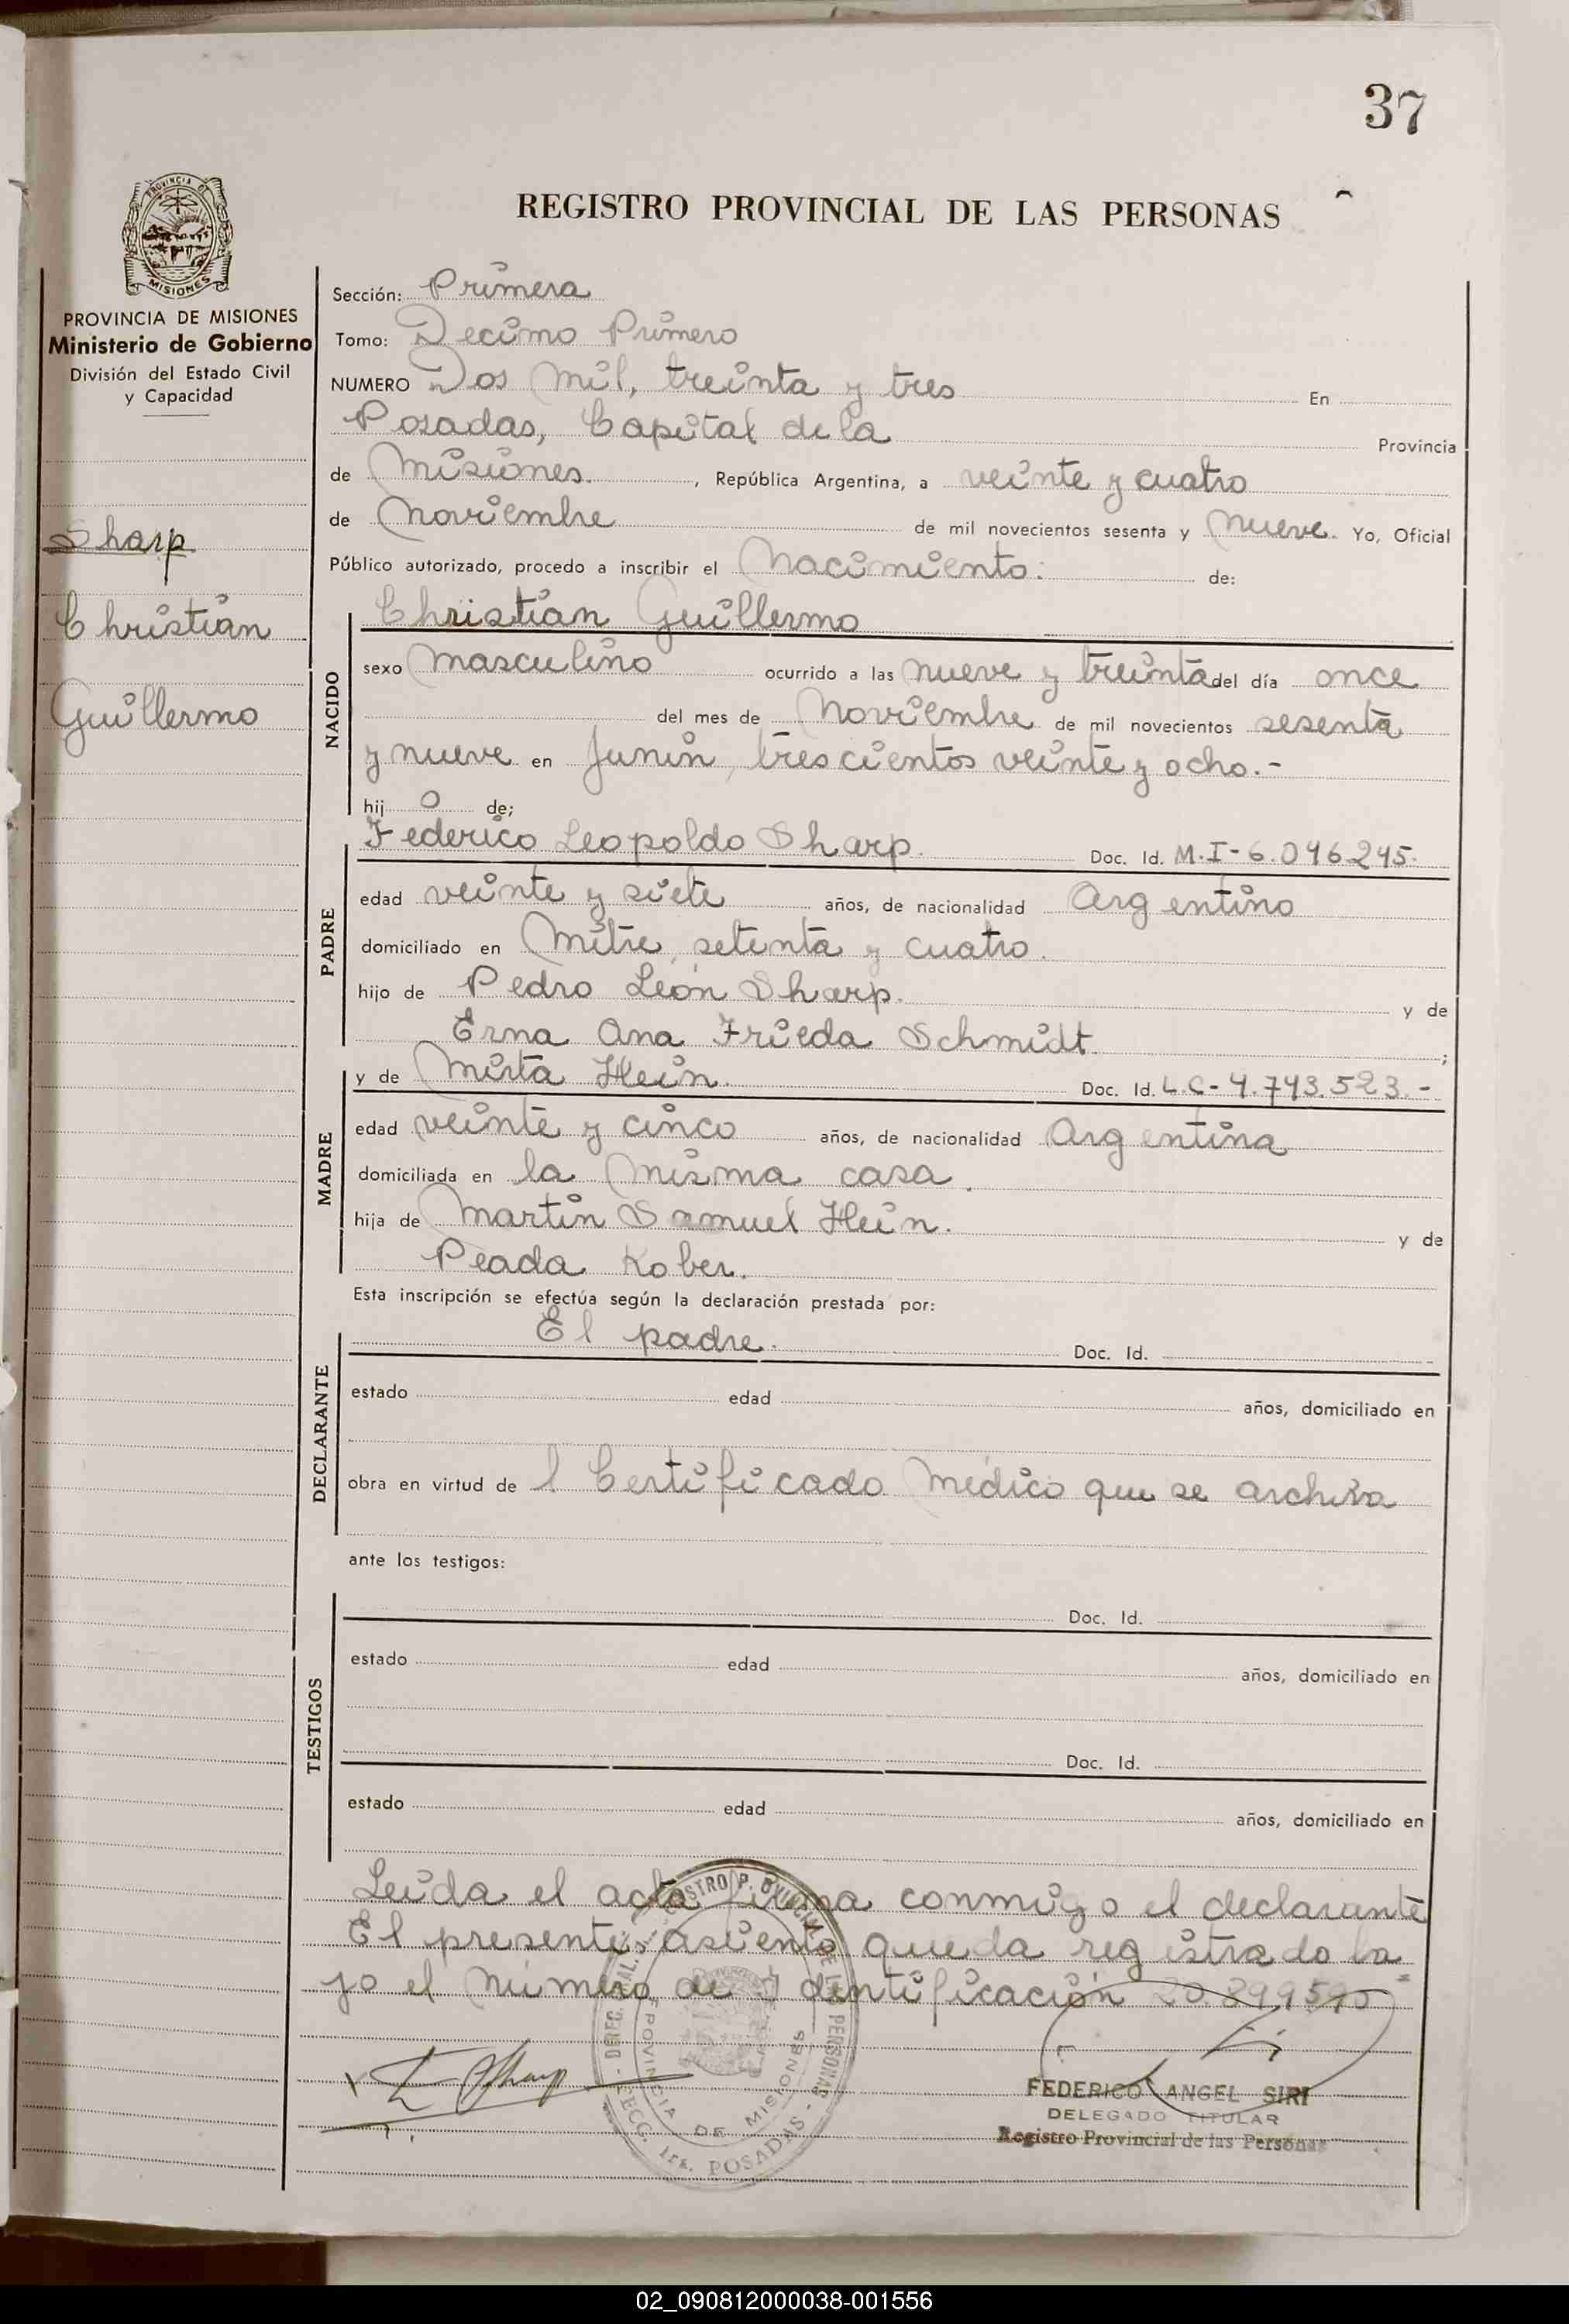 37
PROVINCIA DE
MISIONES
REGISTRO PROVINCIAL DE LAS PERSONAS
PROVINCIA DE MISIONES
Ministerio de Gobierno
División del Estado Civil
y Capacidad
Sharp
Christian
Guillermo
Sección: Primera
Tomo: Decimo Primero
NUMERO Dos mil, treinta y tres En
Posadas, Capital de la Provincia
de Misiones. , República Argentina, a veinte y cuatro
de Noviembre de mil novecientos sesenta y nueve. Yo, Oficial
Público autorizado, procedo a inscribir el Nacimiento. de:
NACIDO
Christian Guillermo
sexo masculino ocurrido a las nueve y treinta del día once
del mes de Noviembre de mil novecientos sesenta
y nueve en Junin, trescientos veinte y ocho.-
hij o de;
PADRE
Federico Leopoldo Sharp. Doc. Id. M.I-6.046.245.
edad veinte y siete años, de nacionalidad Argentino
domiciliado en Mitre, setenta y cuatro.
hijo de Pedro León Sharp. y de
Erna Ana Frieda Schmidt ;
MADRE
y de Mirta Hein. Doc. Id. L.C-4.743.523.-
edad veinte y cinco años, de nacionalidad Argentina
domiciliada en la misma casa.
hija de Martin Samuel Hein. y de
Peada Kober.
Esta inscripción se efectúa según la declaración prestada por:
DECLARANTE
El padre. Doc. Id.
estado edad años, domiciliado en
obra en virtud de l Certificado Médico que se archiva
ante los testigos:
TESTIGOS
Doc. Id.
estado edad años, domiciliado en
Doc. Id.
estado edad años, domiciliado en
Leida el acta firma conmigo el declarante
El presente asiento queda registrado ba=
jo el Número de Identificación 20.899590
F Sharp
PROVINCIA DE MISIONES
SECC. 1ra. POSADAS
FEDERICO ANGEL SIRI
DELEGADO TITULAR
Registro Provincial de las Personas
02_090812000038-001556